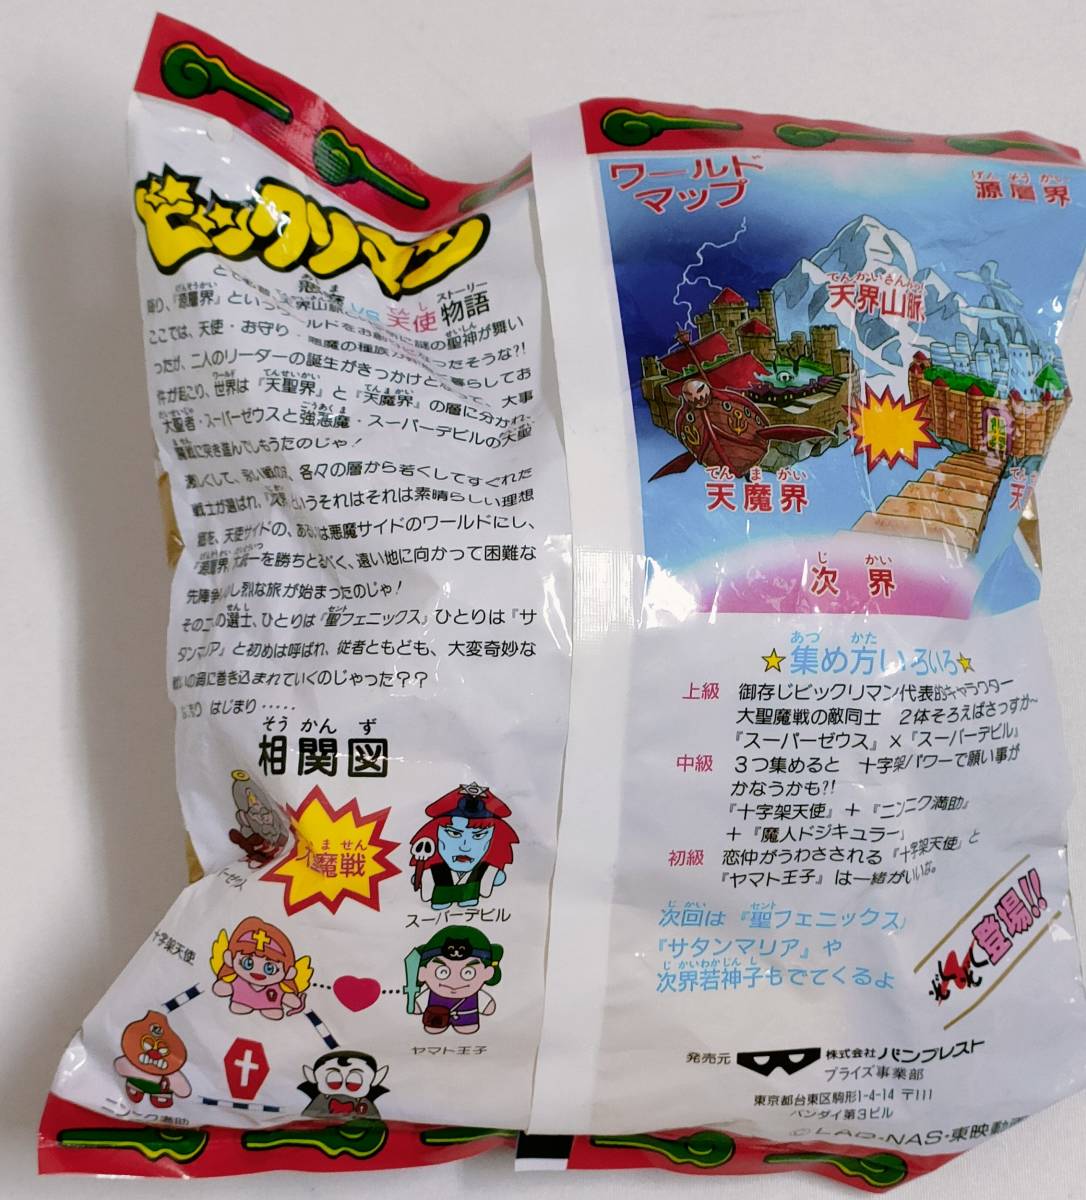 ビックリマン
悪魔 VS 天使 物語
降り、『源層界』という
ここでは、天使・お守り・悪魔の種族が
ったが、二人のリーダーの誕生がきっかけと
件が起こり、世界は『天聖界』と『天魔界』の層に分かれ、
大聖者・スーパーゼウスと強悪魔・スーパーデビルの大聖
魔戦に突き進んでしもうたのじゃ!
各々の層から若くしてすぐれた
戦士が選ばれ、というそれはそれは素晴らしい理想
郷を、天使サイドの、あるいは悪魔サイドのワールドにし、
『源層界』パワーを勝ちとるべく、遠い地に向かって困難な
先陣争いし烈な旅が始まったのじゃ!
その二の選士、ひとりは『聖フェニックス』ひとりは『サ
タンマリア』と初めは呼ばれ、従者ともども、大変奇妙な
戦いの渦に巻き込まれていくのじゃった??
はじまり・・・・・
相関図
魔戦
スーパーデビル
十字架天使
ヤマト王子
ニンニク満助
ワールド
マップ
源層界
天界山脈
天魔界
次界
☆集め方いろいろ☆
上級 御存じビックリマン代表的キャラクター
大聖魔戦の敵同士 2体そろえばさっすか〜
『スーパーゼウス』×『スーパーデビル』
中級 3つ集めると 十字架パワーで願い事が
かなうかも?!
『十字架天使』+『ニンニク満助』
+『魔人ドジキュラー』
初級 恋仲がうわさされる『十字架天使』と
『ヤマト王子』は一緒がいいな。
次回は『聖フェニックス』
『サタンマリア』や
次界若神子もでてくるよ
ぞくぞく登場!!
発売元 株式会社バンプレスト
プライズ事業部
東京都台東区駒形1-4-14 〒111
バンダイ第3ビル
©LAD・NAS・東映動画